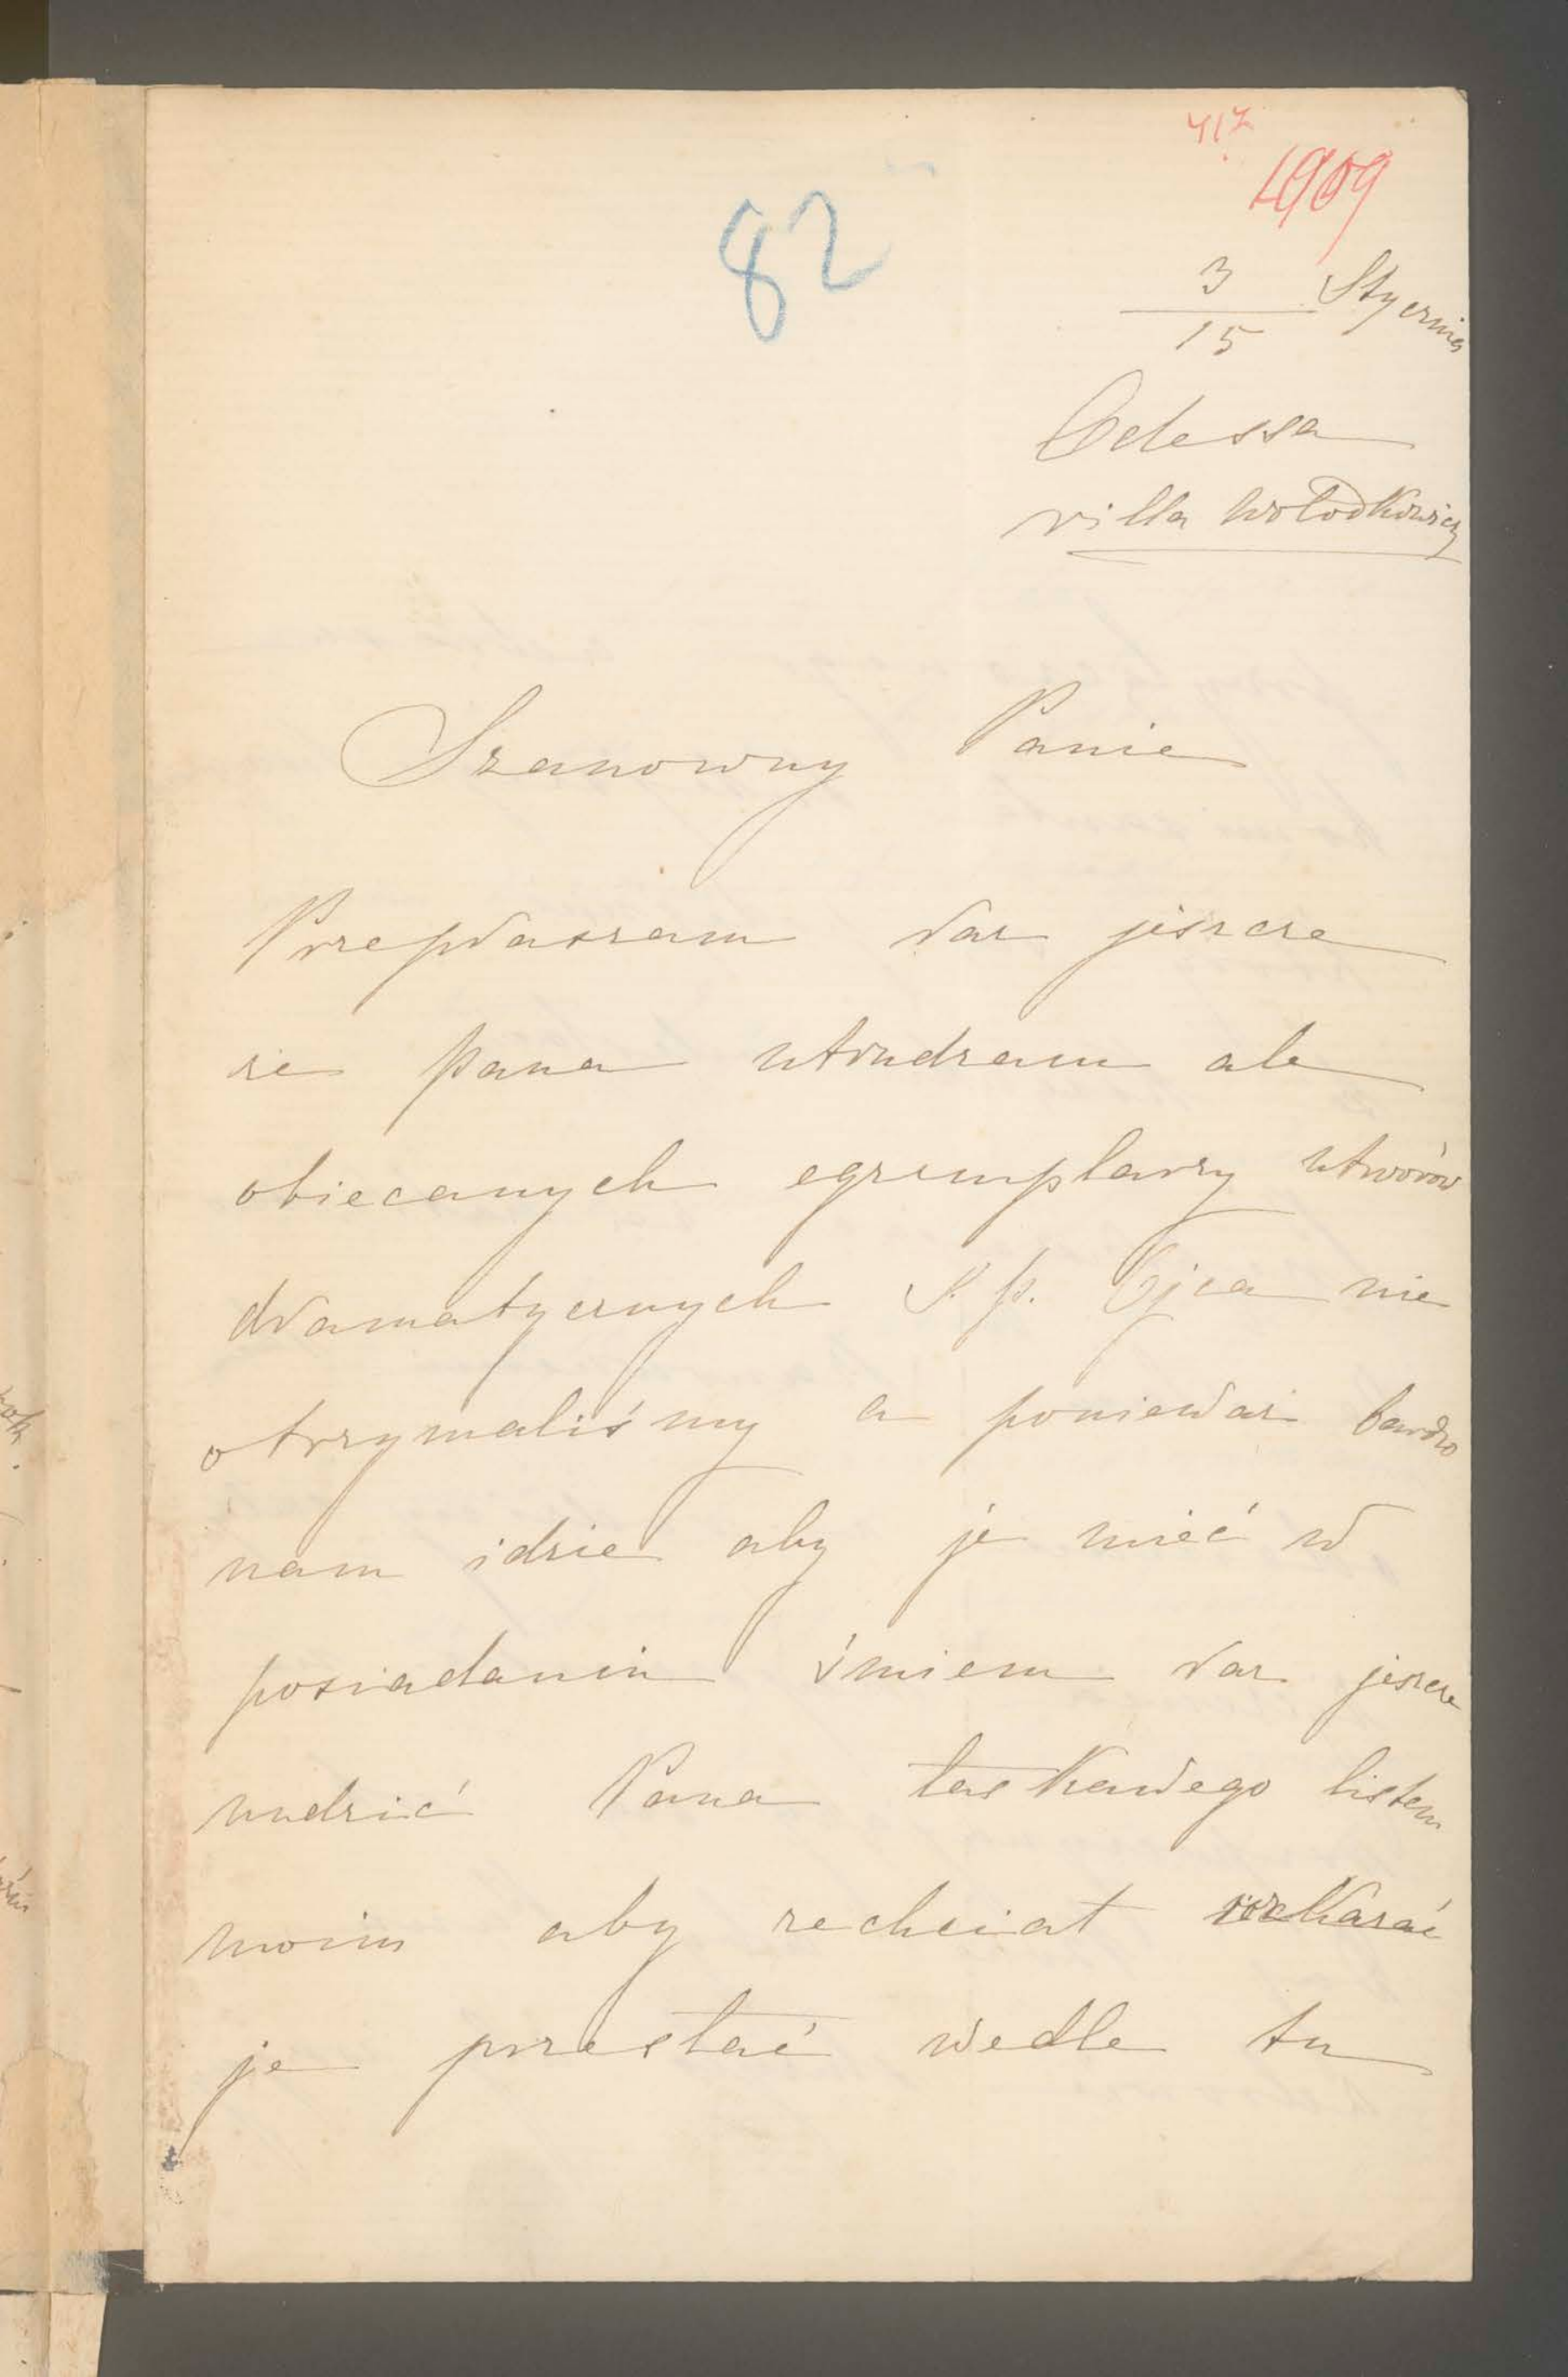 417
1909
82
3 Stycznia
15
Odessa
villa Wołodkowicz
Szanowny Panie
Przepraszam raz jeszcze
że Pana utrudzam ale
obiecanych egzemplarzy utworów
dramatycznych ś. p. Ojca nie
otrzymaliśmy a ponieważ bardzo
nam idzie aby je mieć w
posiadaniu śmiem raz jeszcze
nudzić Pana łaskawego listem
moim aby zechciał rozkazać
je przesłać wedle tu